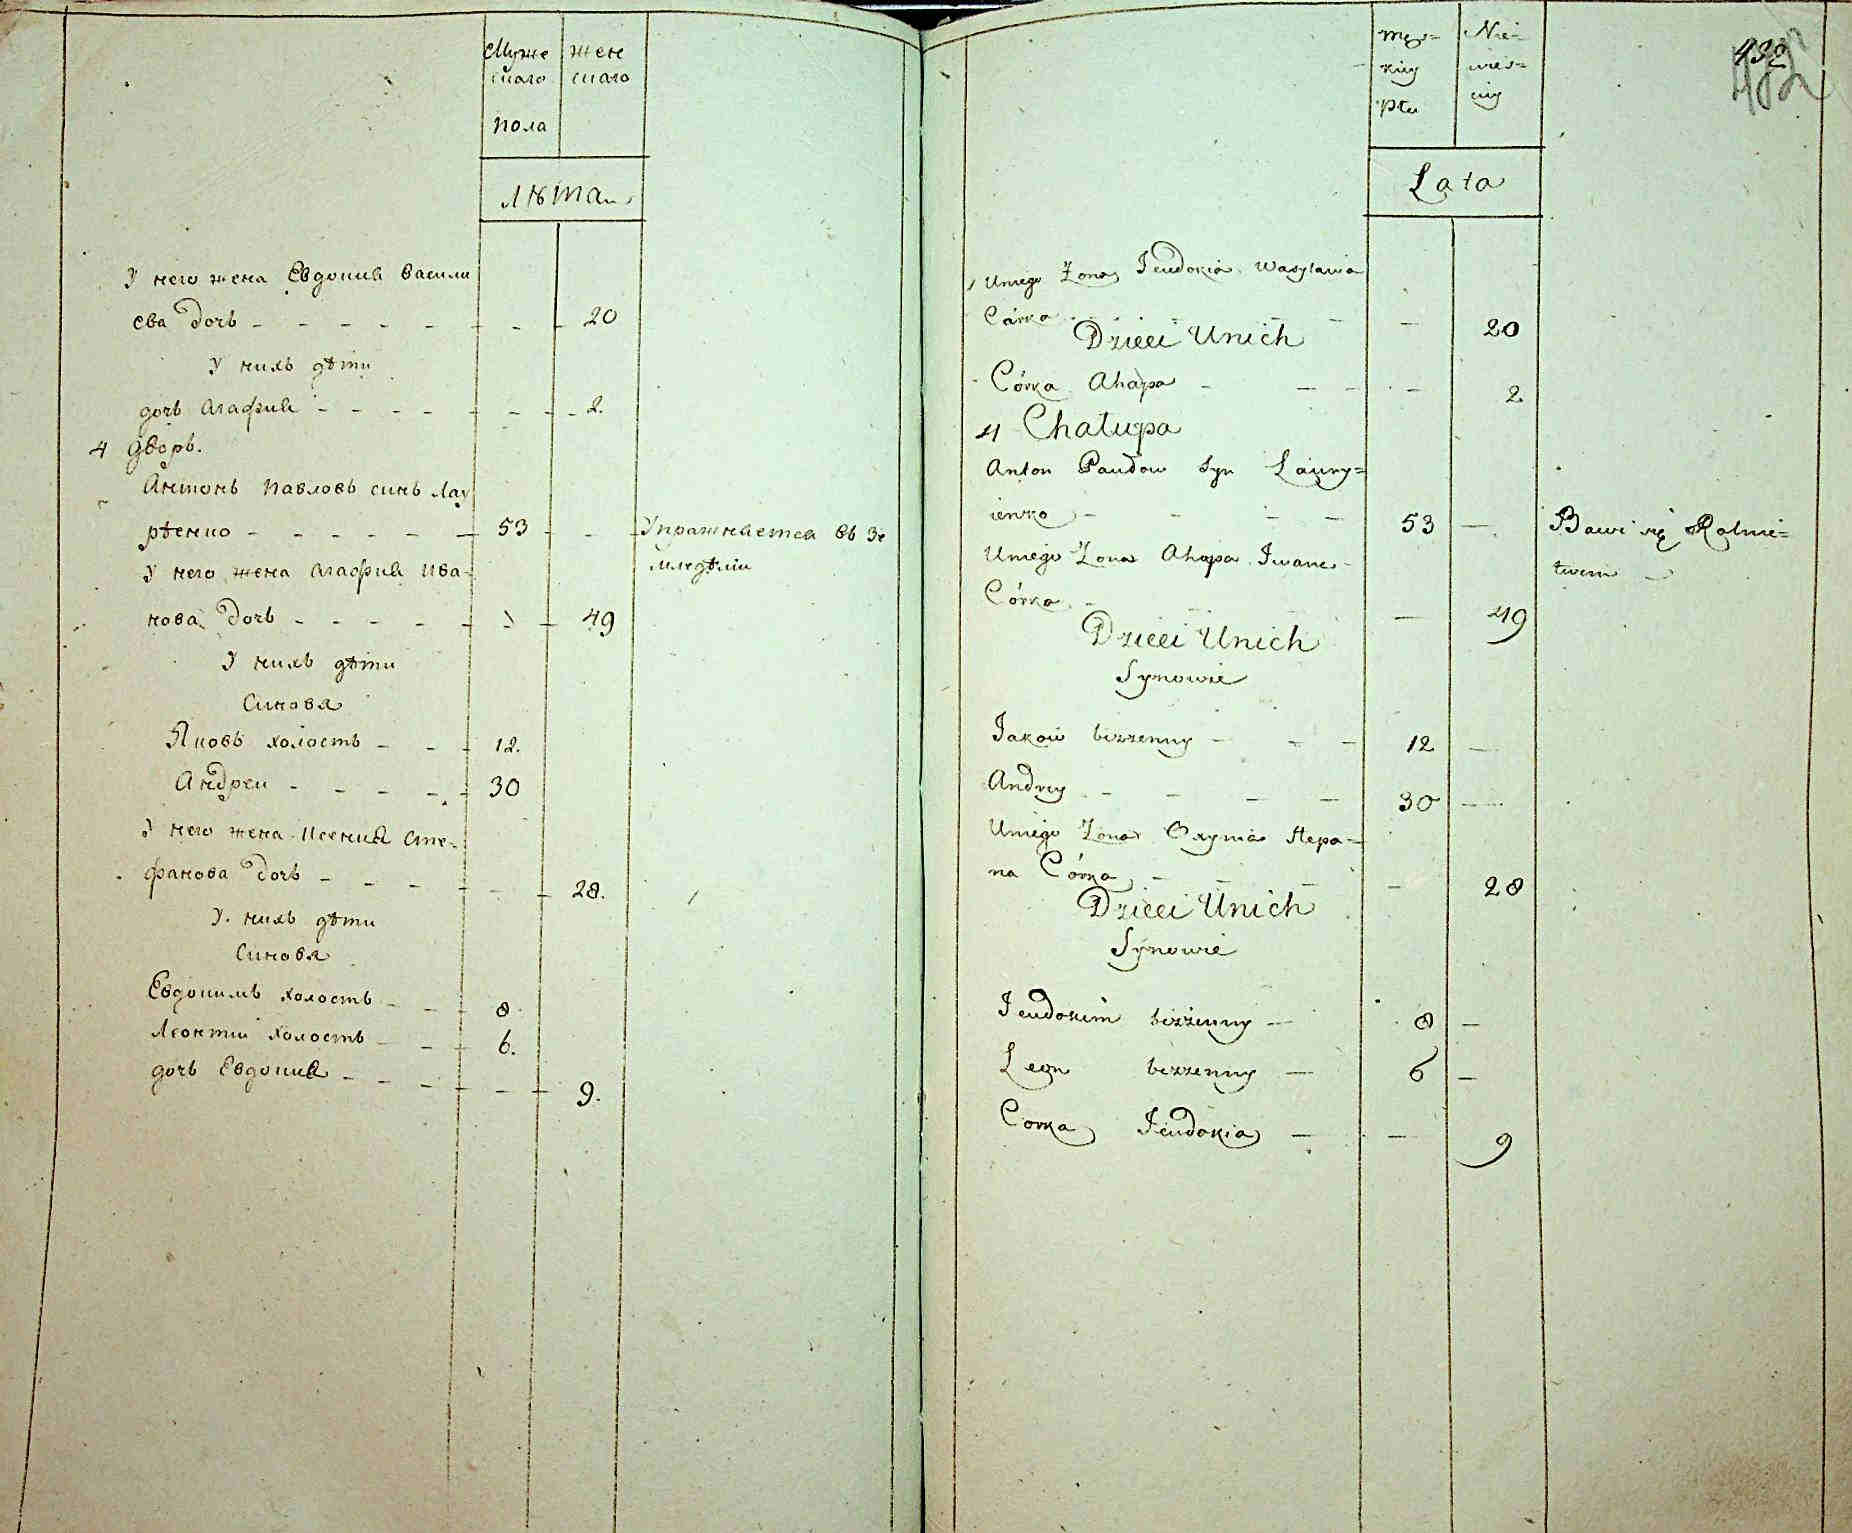 Муже жен
скаго скаго
пола
лѣта
У него жена Евдокия Васили
ева дочь - - - - - - - - 20
У нихъ дѣти
дочь Агафия - - - - - - - - 2.
4 дворъ.
Антонъ Павловъ синъ Лау
рѣенко - - - - - - 53 - - Упражняется въ Зе
мледѣлiи
У него жена Агафия Ива-
нова дочь - - - - - - - 49
У нихъ дѣти
Синовя
Яковъ холостъ - - - 12.
Андреи - - - - - 30
У него жена Ксения Сте-
фанова дочь - - - - - - 28.
У нихъ дѣти
Синовя
Евдокимъ холостъ - - - 8
Леонтiи холостъ - - - 6.
дочь Евдокия - - - - - - 9.
męz= Nie=
kiey wies=
Płci ciey
432
482
Lata
Uniego Zona Jeudokia Wasylawa
Córka - - - - - 20
Dzieci Unich
Córka Ahapa - - - - 2
4 Chałupa
Anton Pawłow SynŁawry=
ienko - - - - 53 - Bawi się Rolnic=
twem -
Uniego Zona Ahapa Iwana -
Córka - - 49
Dzieci Unich
Synowie
Jakow bezzenny - - - 12 -
Andrey - - - - 30 -
Uniego Zona Oxynia Stepa=
na Córka - - - - 28
Dzieci Unich
Synowie
Jeudokim bezżenny - 8 -
Leon bezzenny - 6 -
Corka Jeudokia - - 9